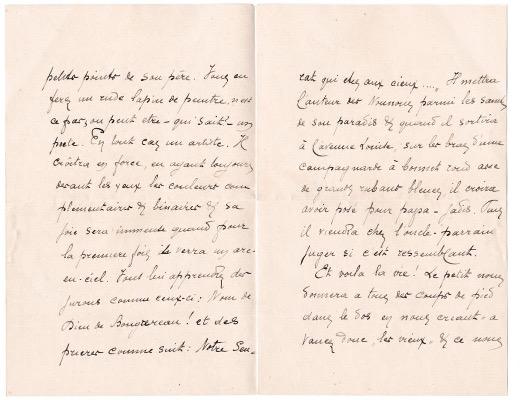 petits points de son père. Vous en
ferez un rude lapin de peintre, n'est
ce pas, ou peut être - qui sait! - un
poète. En tout cas un artiste. Il
croîtra en force, en ayant toujours
devant les yeux les couleurs com
plementaires & binaires & sa
joie sera immense quand pour
la premiere fois il verra un arc-
en-ciel. Vous lui apprendrez des
jurons comme ceux-ci: Nom de
Dieu de Bouguereau! et des
prieres comme suit: Notre Seu-
rat qui êtes aux cieux...., Il mettra
l'auteur des Nounous parmi les saints
de son paradis & quand il sortira
à l'avenue Louise, sur les bras d'une
campagnarde à bonnet rond avec
de grands rubans bleus, il croira
avoir posé pour papa - jadis. Puis
il viendra chez l'oncle-parrain
juger si c'est ressemblant.
Et voila la vie! Le petit nous
donnera a tous des coups de pied
dans le dos en nous criant - a
vancez donc, les vieux - & ce nous